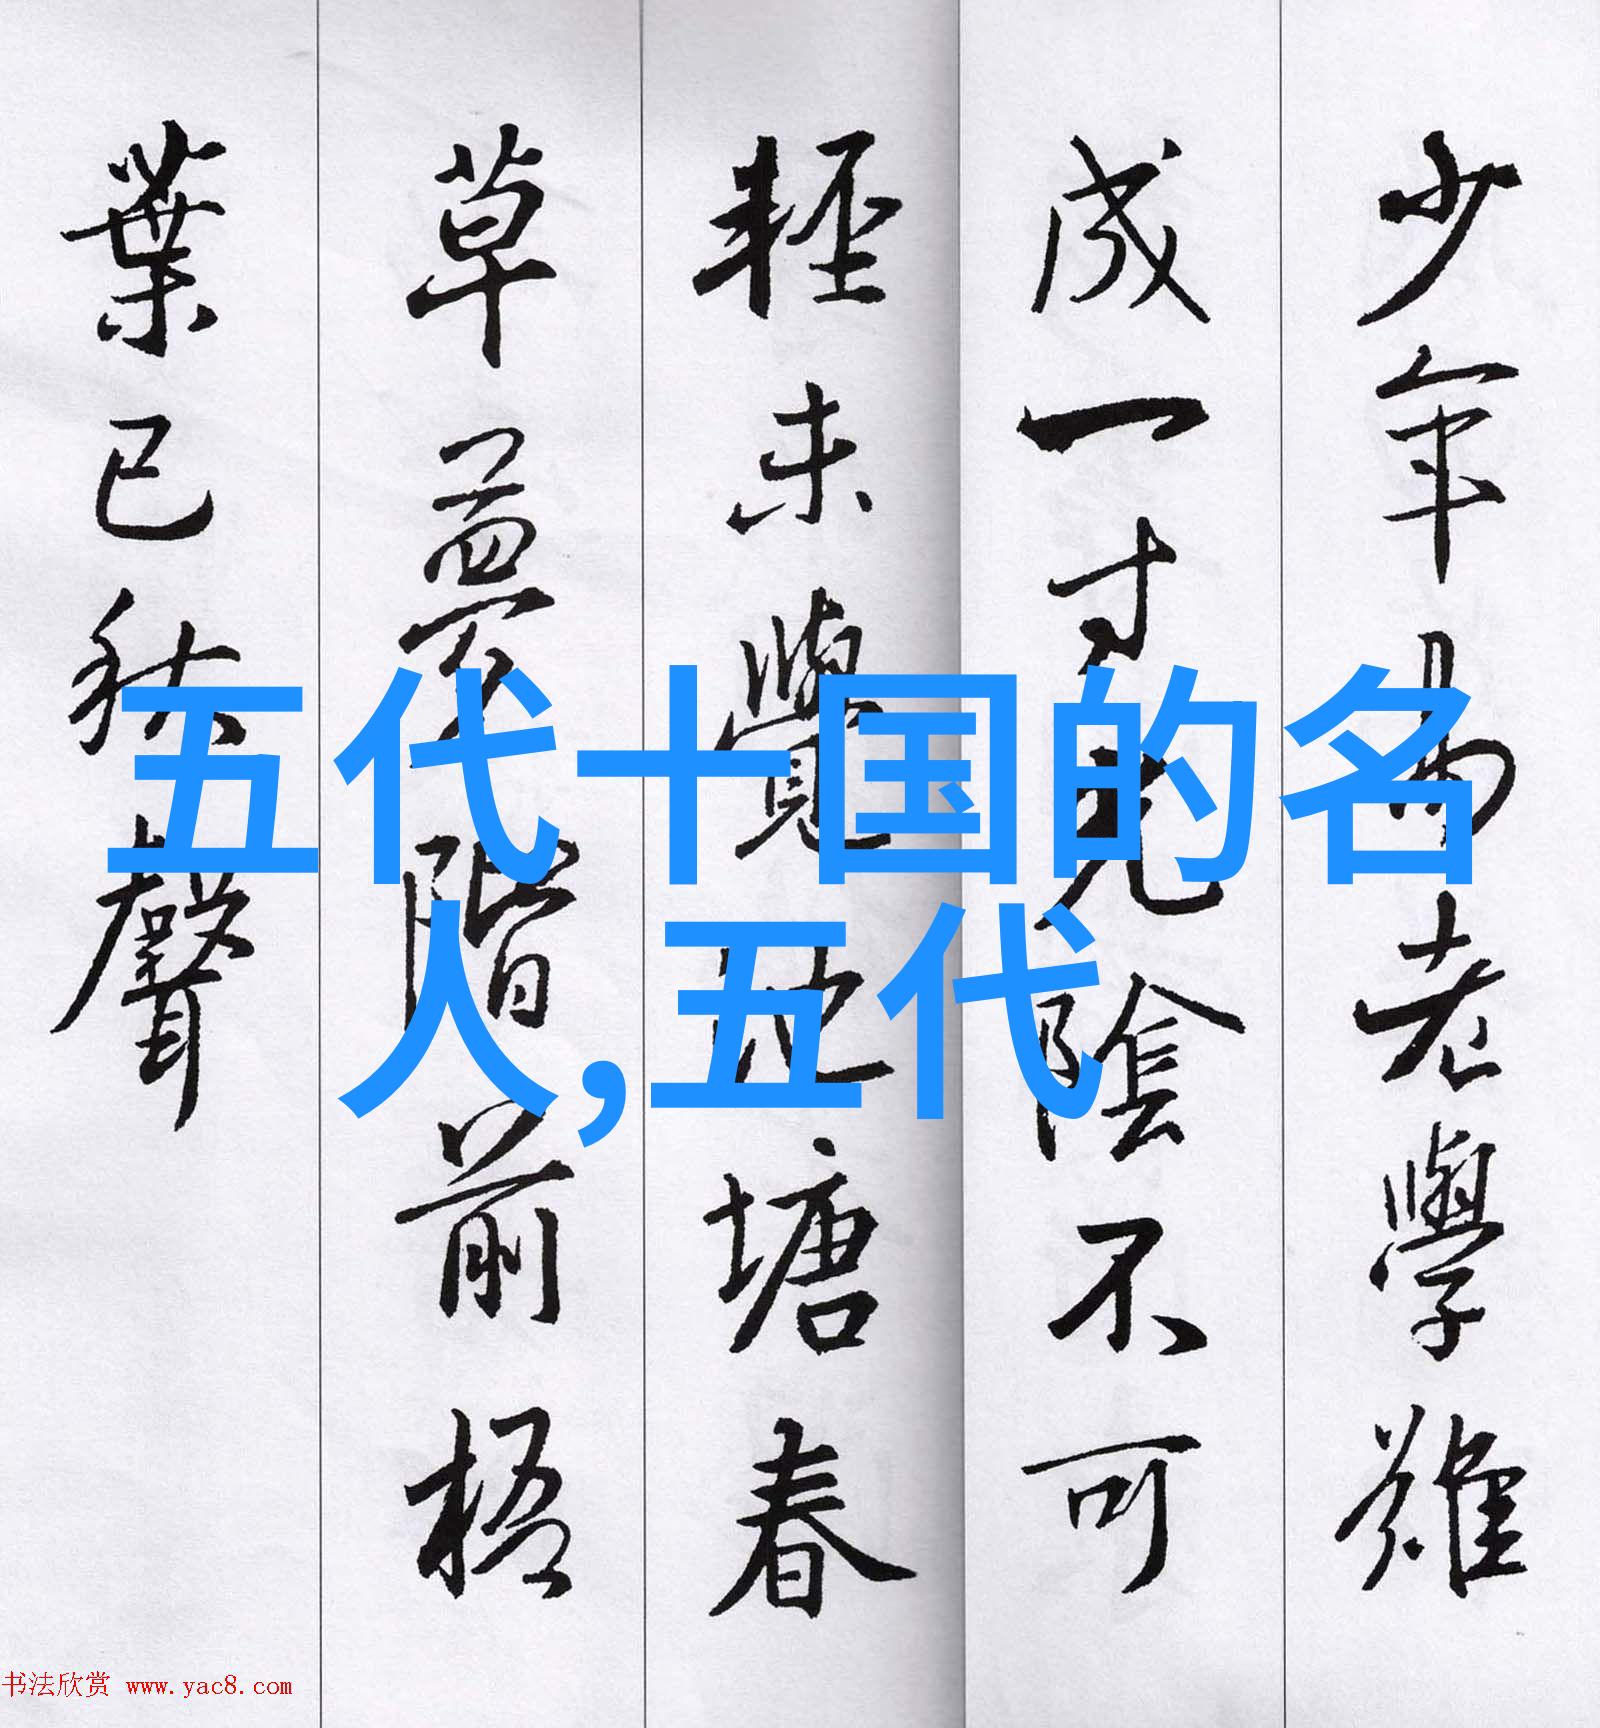 少年易老學難
成一寸光陰不可
輕未覺池塘春
草夢階前梧
葉已秋聲
五代十国的名
人,五代
书法欣赏 www.yac8.com